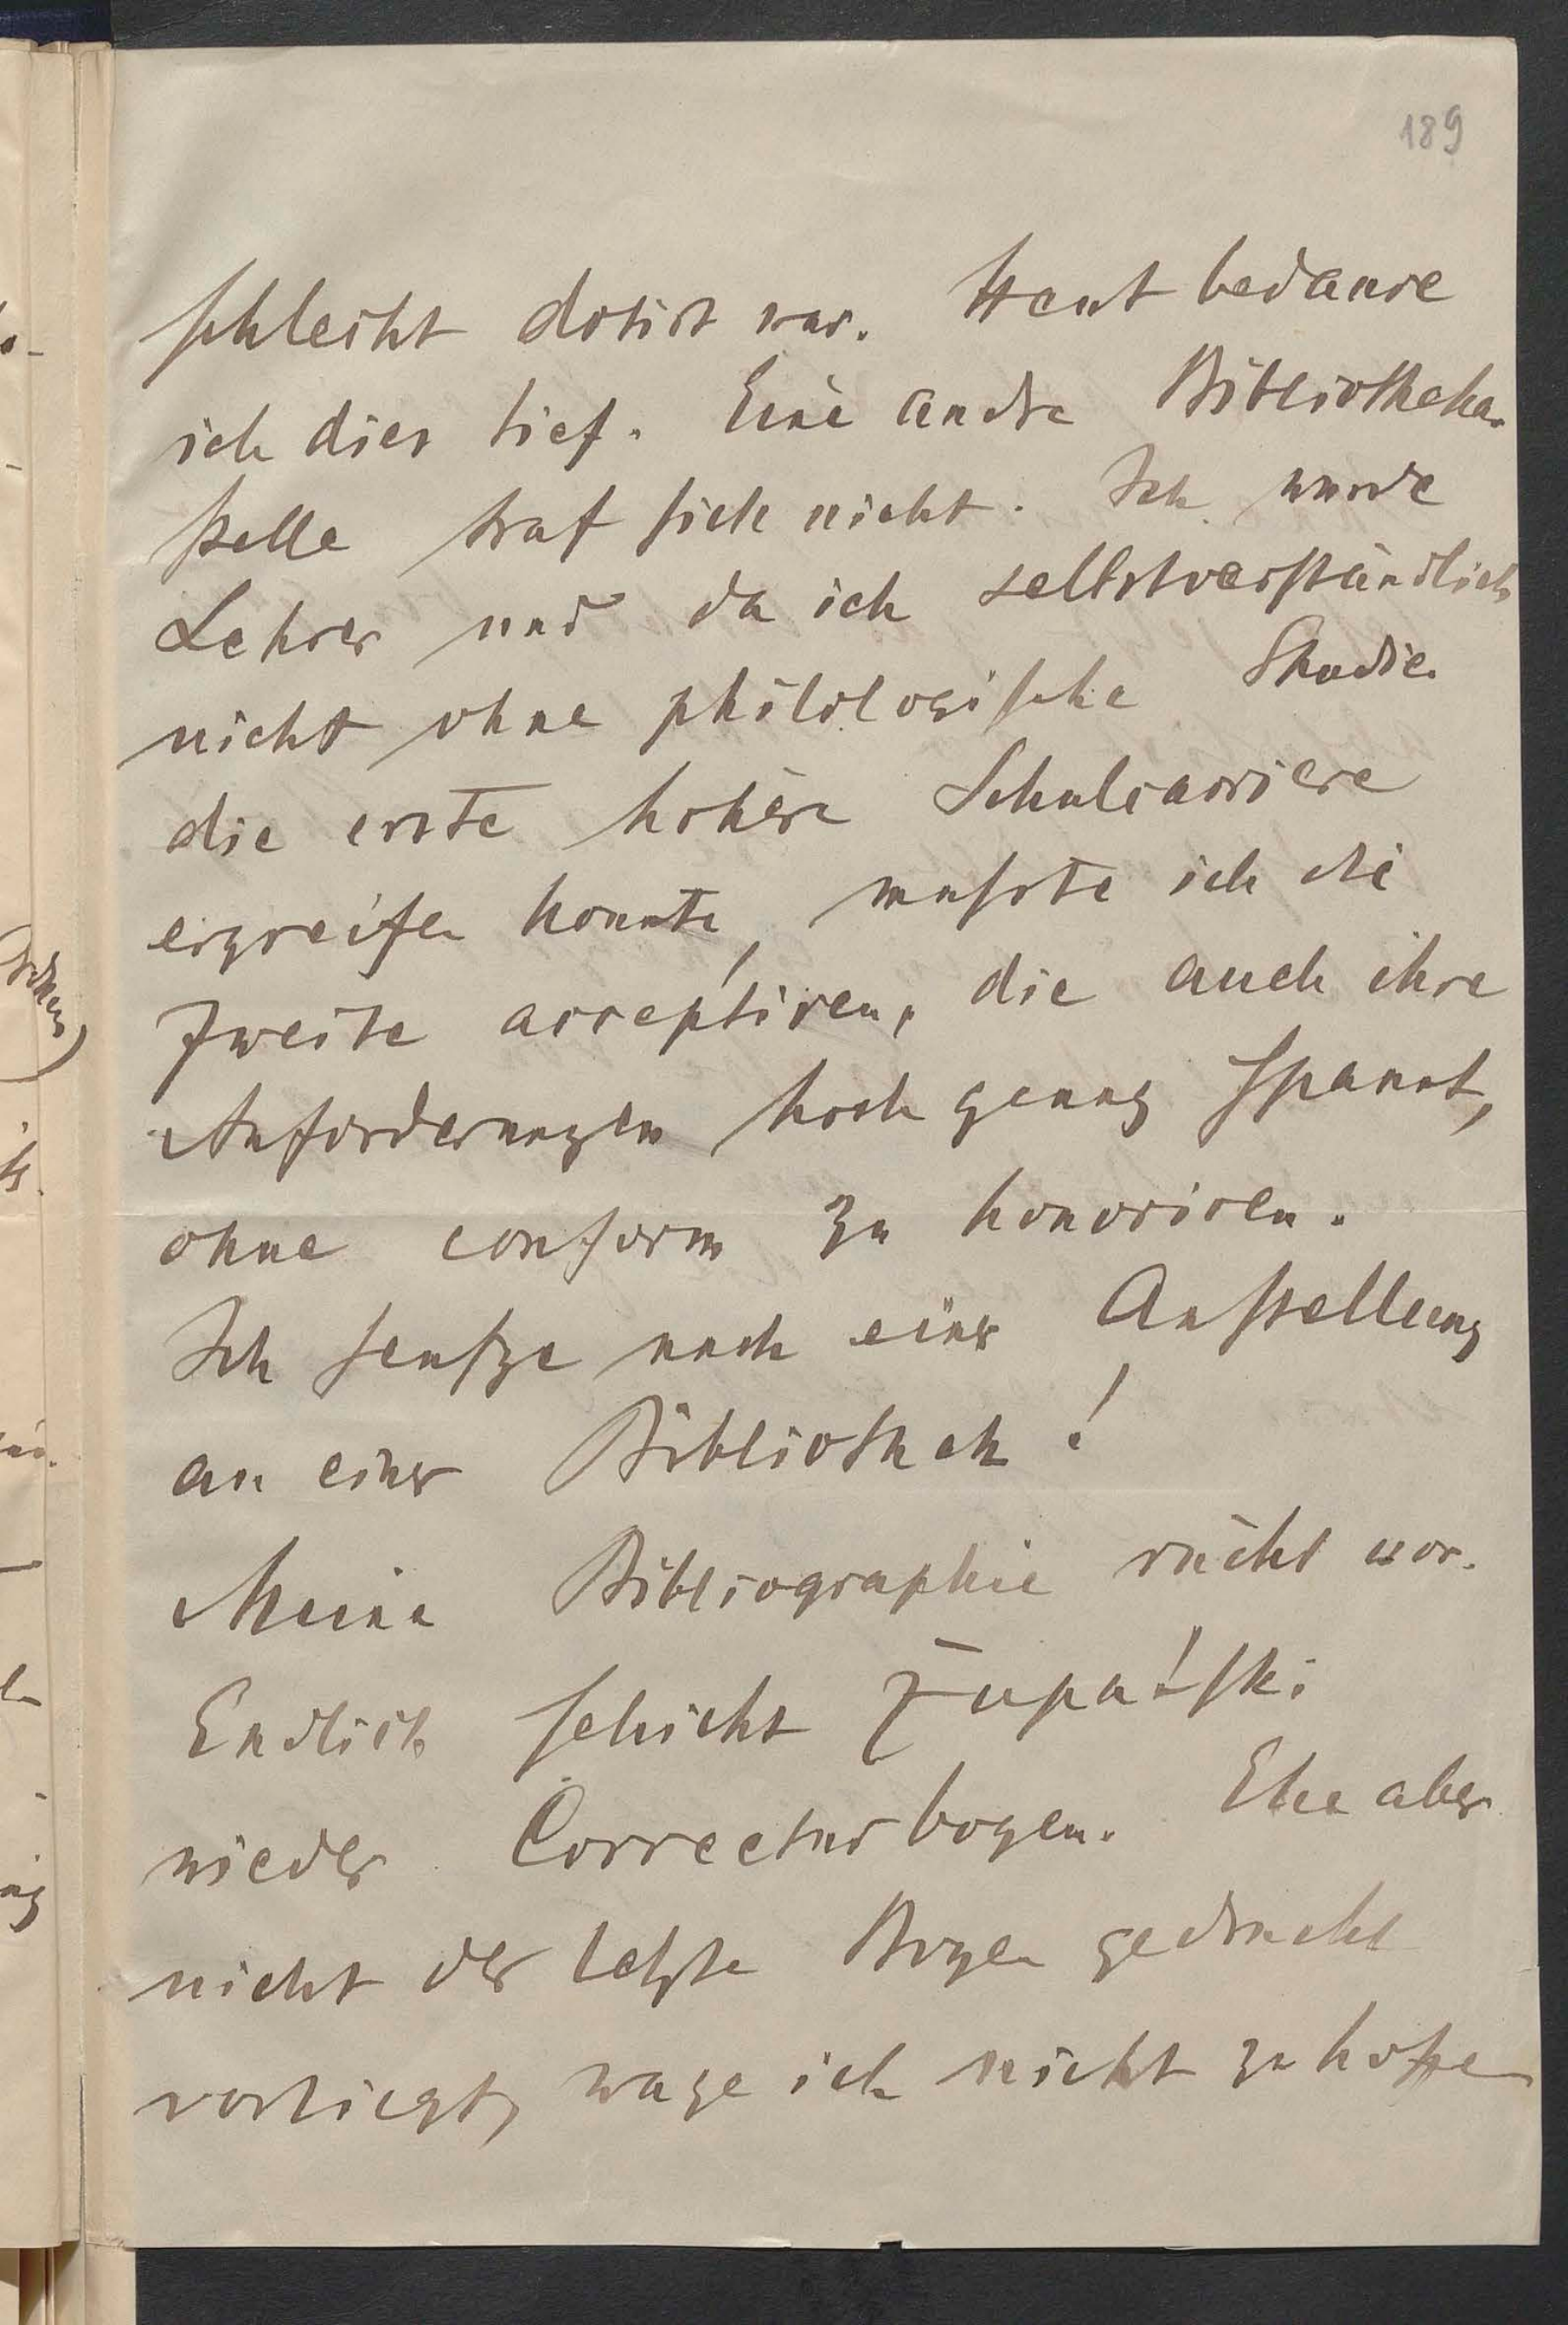 189
schlecht dotirt war. Heut bedaure
ich dies tief. Eine andre Bibliothekar
stelle traf sich nicht. Ich wurde
Lehrer und da ich selbstverständlich
nicht ohne philologische Studien
die erste höhere Schulcarriere
ergreifen konnte, mußte ich die
zweite acceptiren, die auch ihre
Anforderungen hoch genug spannt,
ohne conform zu honoriren.
Ich seufze nach einer Anstellung
an einer Bibliothek!
Meine Bibliographie rückt vor.
Endlich schickt Żupański
wieder Correcturbogen. Ehe aber
nicht der letzte Bogen gedruckt
vorliegt, wage ich nicht zu hoffen